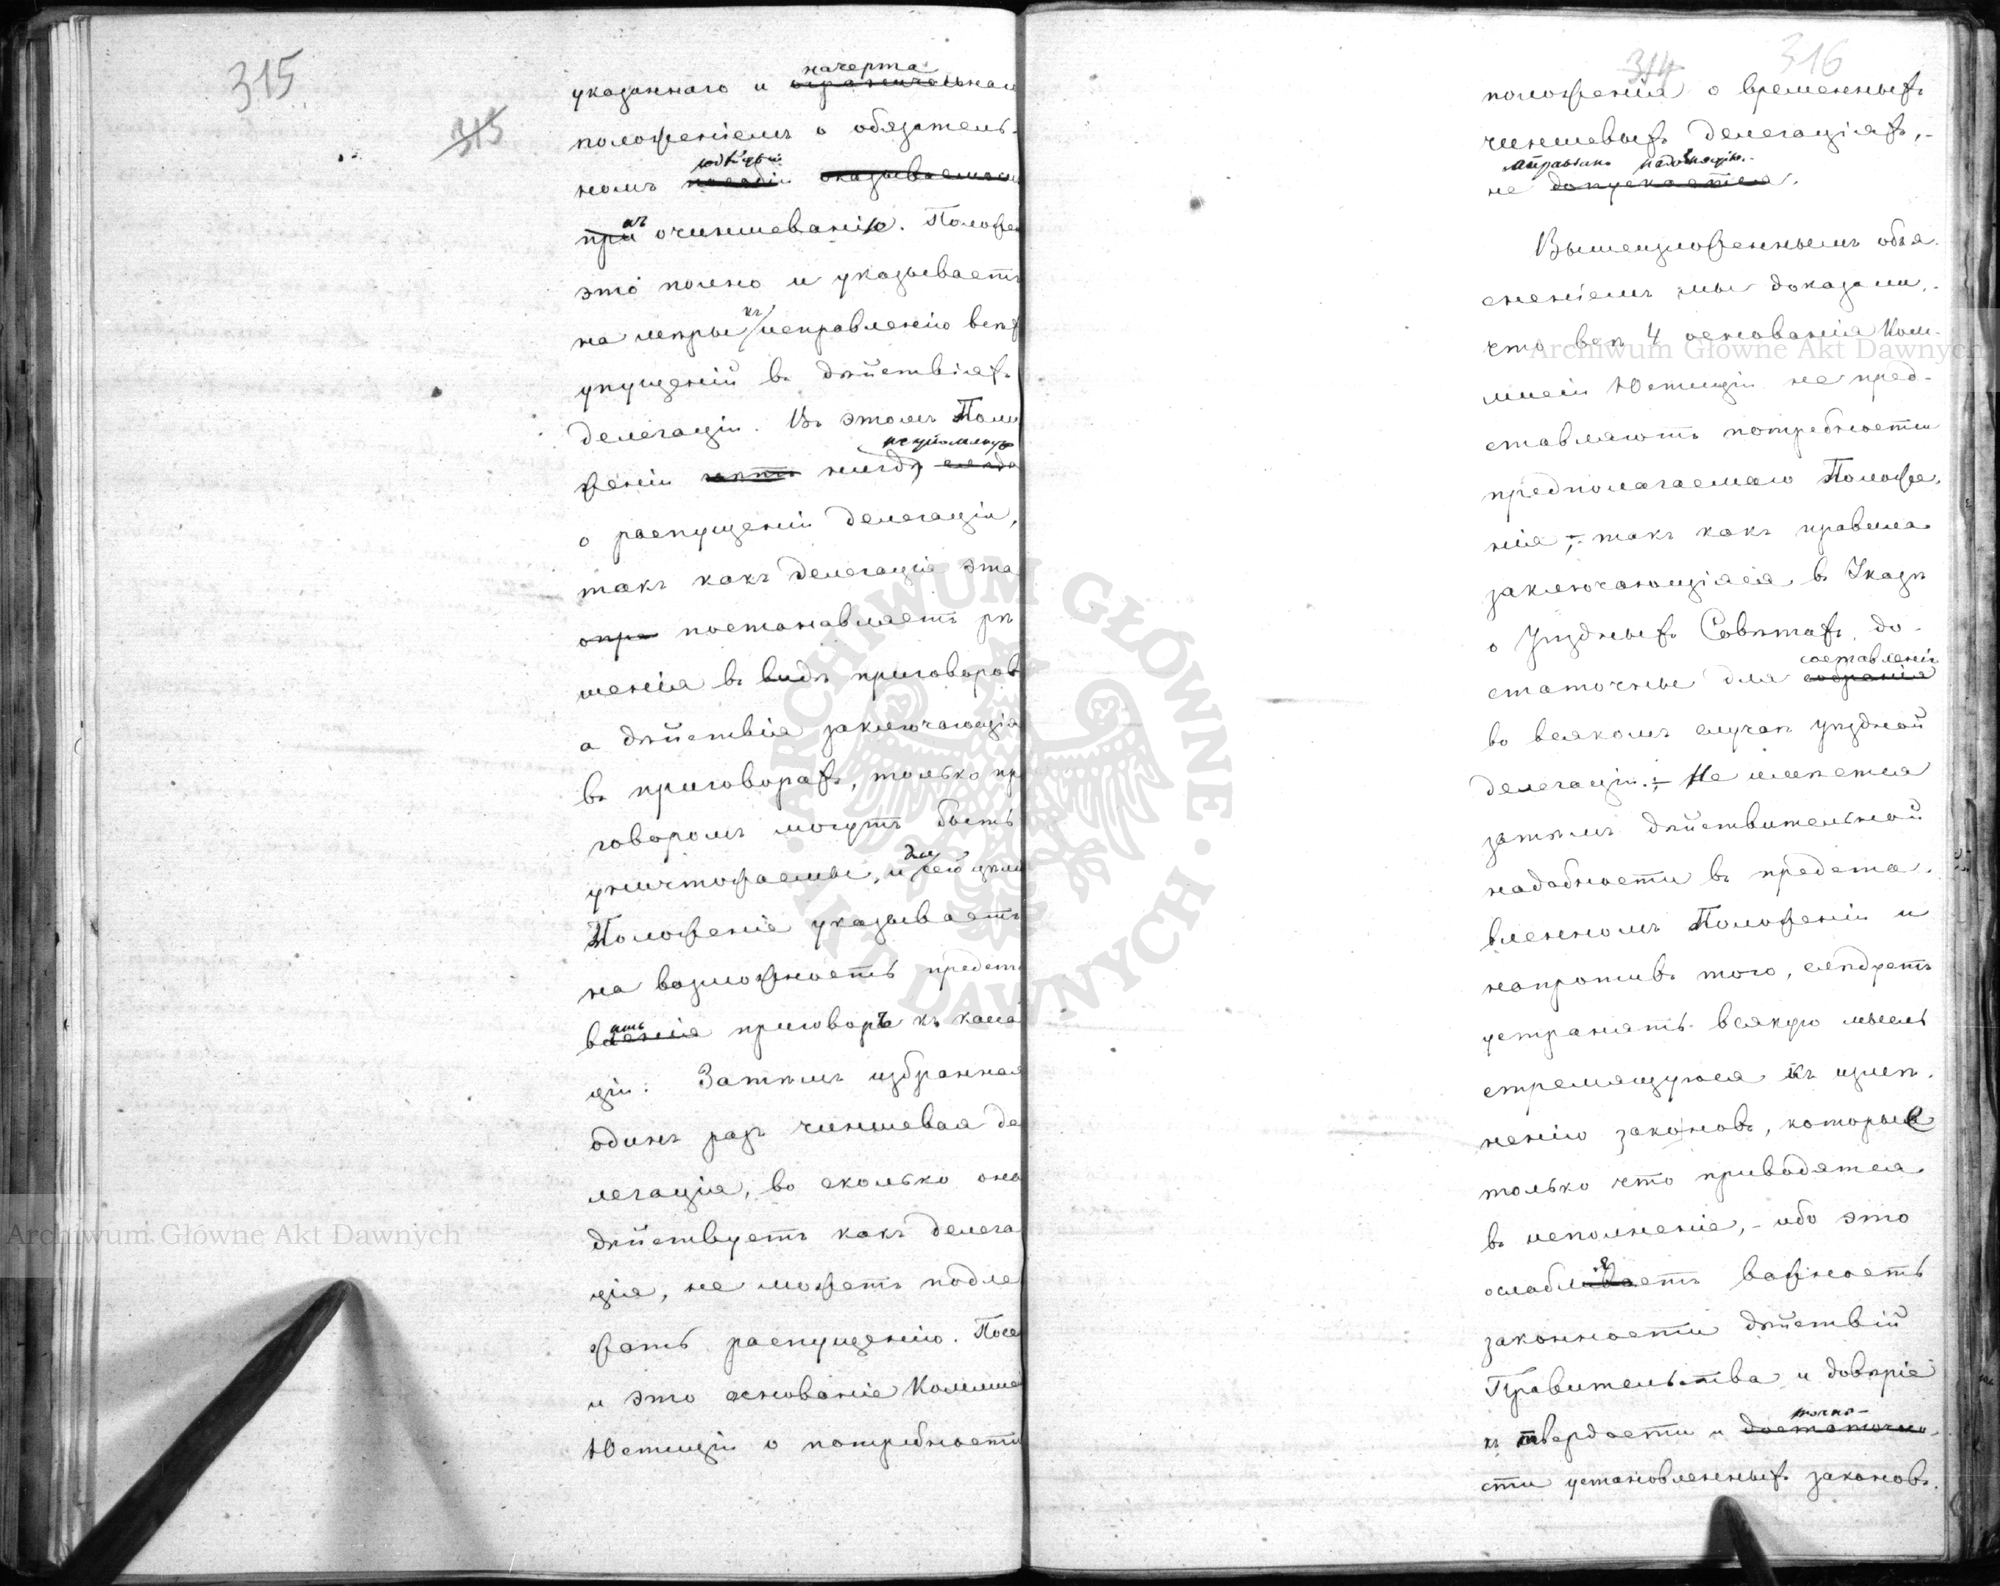 315
315
начерта
указаннаго и ограничельнаго
положеніемъ о обязатель-
номъ
къ
при очиншеванію. Положе
это полно и указываетъ
на мѣры къ исправленію всѣхъ
упущеній въ дѣйствіяхъ
делегаціи. Въ этомъ Поло
женіи нигдѣ
о распущеніи делегаціи,
такъ какъ делегація эта
опре постановляетъ рѣ
шенія въ видѣ приговоров
а дѣйствія заключающія
въ приговорахъ, только пр
говоромъ могутъ быть
для
уничтожаемы, и сей цѣли
Положеніе указываетъ
на возможность предста
ить
вленія приговоръ къ касса
ціи. Затѣмъ избранная
одинъ разъ чиншевая де
легація, во сколько она
дѣйствуетъ какъ делега
ція, не можетъ подле
жать распущенію. Посе
и это основаніе Коммис
Юстиціи о потребности
314 316
положенія о временныхъ
чиншевыхъ делегаціяхъ,-
не допускается.
Вышеизложеннымъ объя-
сненіемъ мы доказали,-
что всѣ 4 основанія Ком-
мисіи Юстиціи не пред-
ставляютъ потребности
предполагаемаго Положе-
нія; такъ какъ правила
заключающіяся въ Указѣ
о Уѣздныхъ Совѣтахъ, до-
составленія
статочны для собранія
во всякомъ случаѣ уѣздной
делегаціи.; Не имѣется
затѣмъ дѣйствительной
надобности въ предста-
вленномъ Положеніи и
напротивъ того, слѣдуетъ
устранять всякую мысль
стремящуюся къ измѣ-
ненію законовъ, которые
только что приводятся
въ исполненіе,- ибо это
ослабляетъ важность
законности дѣйствій
Правительства и довѣріе
точно-
къ твердости и достаточно-
сти установленныхъ законовъ.
Archiwum Główne Akt Dawnych
Archiwum Główne Akt Dawnych
ARCHIWUM GŁÓWNE · AKT DAWNYCH ·